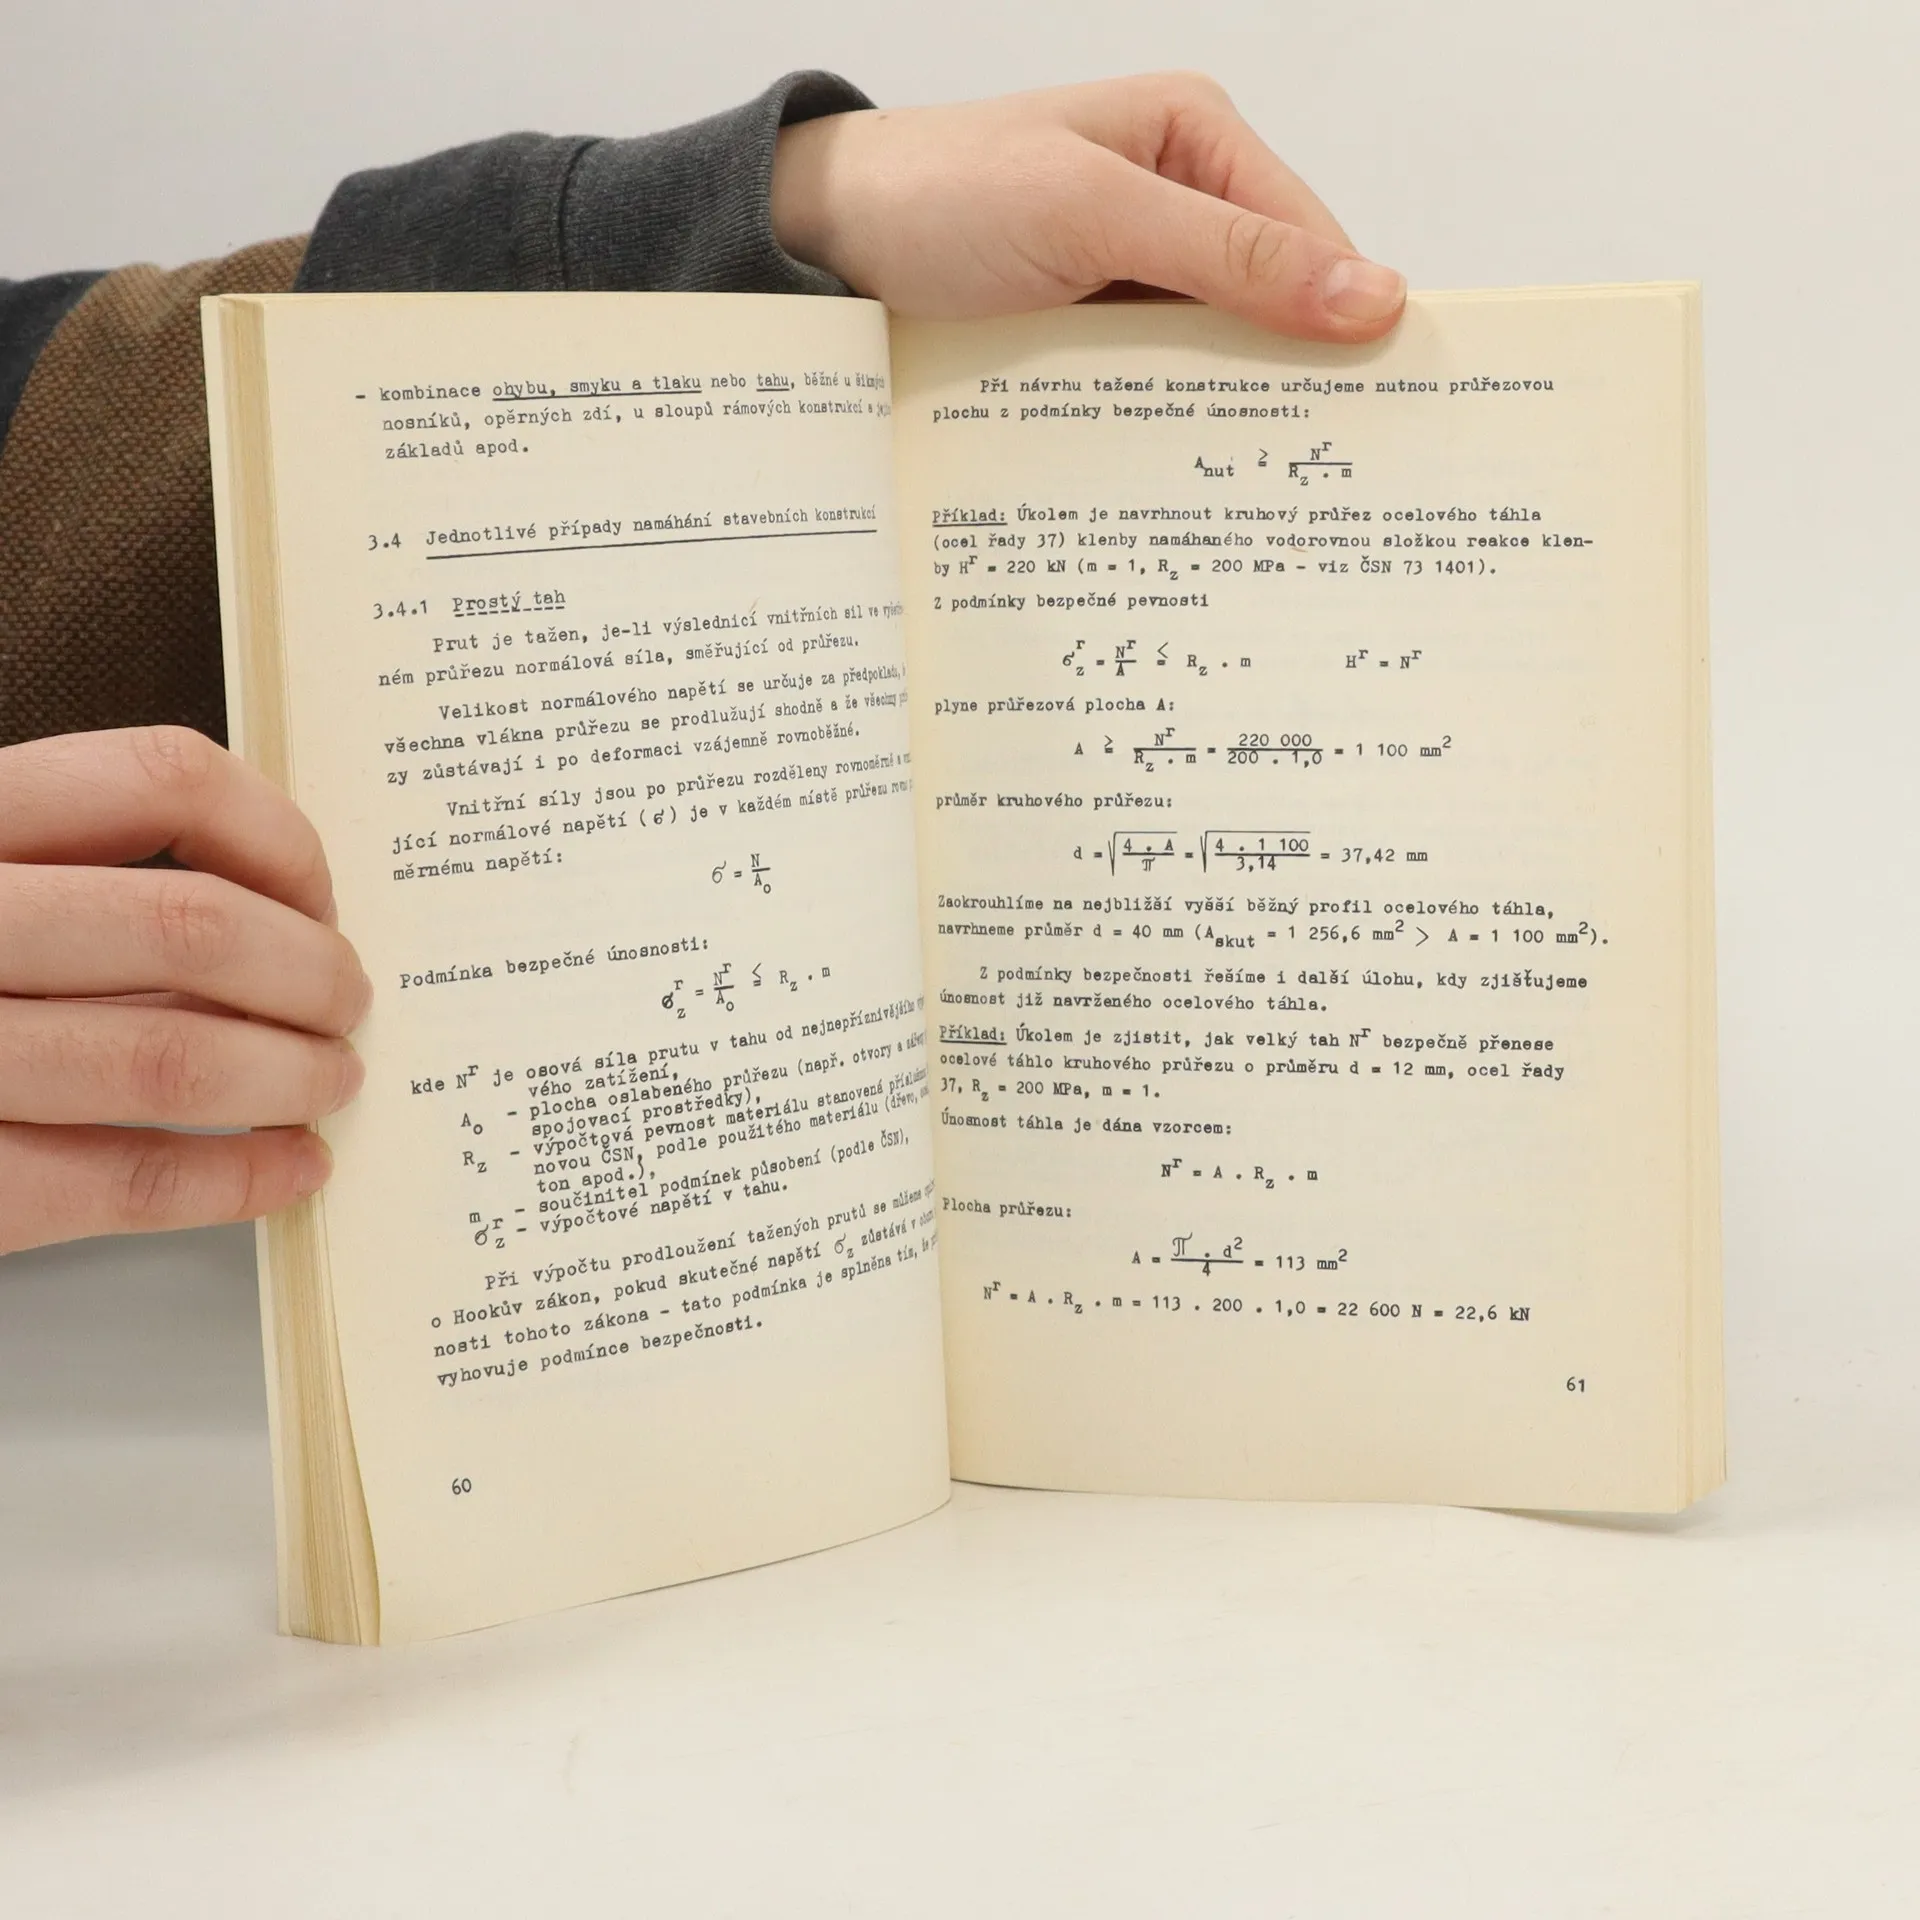 - kombinace ohybu, smyku a tlaku nebo tahu, běžné u
nosníků, opěrných zdí, u sloupů rámových konstrukcí a
základů apod.
3.4 Jednotlivé případy namáhání stavebních konstrukcí
3.4.1 Prostý tah
Prut je tažen, je-li výslednicí vnitřních sil ve
ném průřezu normálová síla, směřující od průřezu.
Velikost normálového napětí se určuje za předpokladu,
všechna vlákna průřezu se prodlužují shodně a že všechny
zy zůstávají i po deformaci vzájemně rovnoběžné.
Vnitřní síly jsou po průřezu rozděleny rovnoměrně a
jící normálové napětí (σ) je v každém místě průřezu
měrnému napětí:
σ = N/A₀
Podmínka bezpečné únosnosti:
σ_z^r = N^r/A₀ ≦ R_z . m
kde N^r je osová síla prutu v tahu od nejnepříznivějšího
vého zatížení,
A₀ - plocha oslabeného průřezu (např. otvory a
spojovací prostředky),
R_z - výpočtová pevnost materiálu stanovená
novou ČSN, podle použitého materiálu (dřevo,
ton apod.),
m - součinitel podmínek působení (podle ČSN),
σ_z^r - výpočtové napětí v tahu.
Při výpočtu prodloužení tažených prutů se můžeme
o Hookův zákon, pokud skutečné napětí σ_z zůstává v
nosti tohoto zákona - tato podmínka je splněna tím, že
vyhovuje podmínce bezpečnosti.
60
Při návrhu tažené konstrukce určujeme nutnou průřezovou
plochu z podmínky bezpečné únosnosti:
A_nut ≧ N^r/(R_z . m)
Příklad: Úkolem je navrhnout kruhový průřez ocelového táhla
(ocel řady 37) klenby namáhaného vodorovnou složkou reakce klen-
by H^r = 220 kN (m = 1, R_z = 200 MPa - viz ČSN 73 1401).
Z podmínky bezpečné pevnosti
σ_z^r = N^r/A ≦ R_z . m H^r = N^r
plyne průřezová plocha A:
A ≧ N^r/(R_z . m) = 220 000/(200 . 1,0) = 1 100 mm²
průměr kruhového průřezu:
d = √(4 . A/π) = √(4 . 1 100/3,14) = 37,42 mm
Zaokrouhlíme na nejbližší vyšší běžný profil ocelového táhla,
navrhneme průměr d = 40 mm (A_skut = 1 256,6 mm² > A = 1 100 mm²).
Z podmínky bezpečnosti řešíme i další úlohu, kdy zjišťujeme
únosnost již navrženého ocelového táhla.
Příklad: Úkolem je zjistit, jak velký tah N^r bezpečně přenese
ocelové táhlo kruhového průřezu o průměru d = 12 mm, ocel řady
37, R_z = 200 MPa, m = 1.
Únosnost táhla je dána vzorcem:
N^r = A . R_z . m
Plocha průřezu:
A = π . d²/4 = 113 mm²
N^r = A . R_z . m = 113 . 200 . 1,0 = 22 600 N = 22,6 kN
61